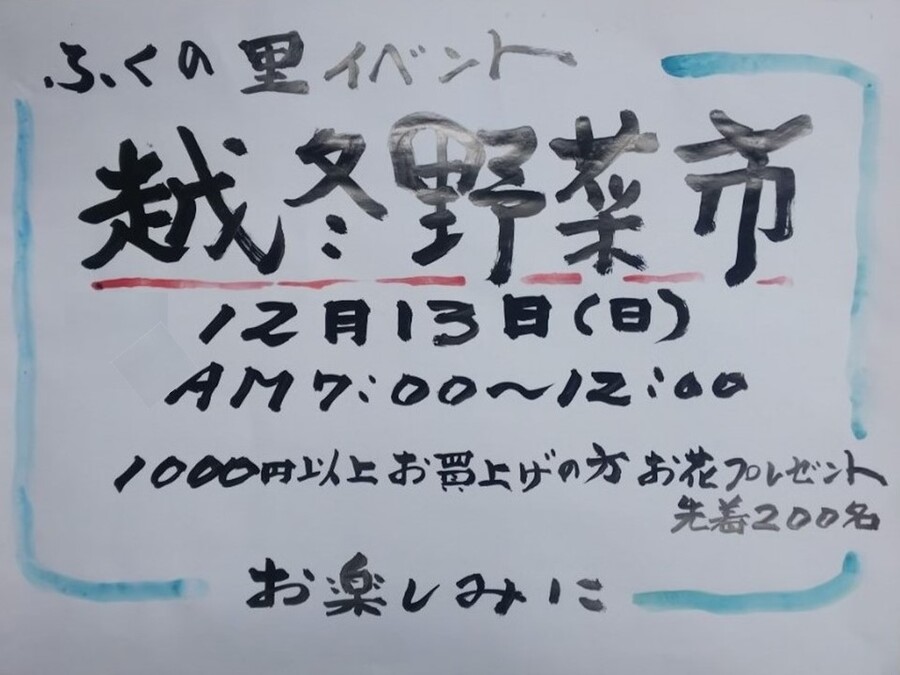 ふくの里イベント
越冬野菜市
12月13日(日)
AM7:00～12:00
1000円以上お買上げの方 お花プレゼント
先着200名
お楽しみに